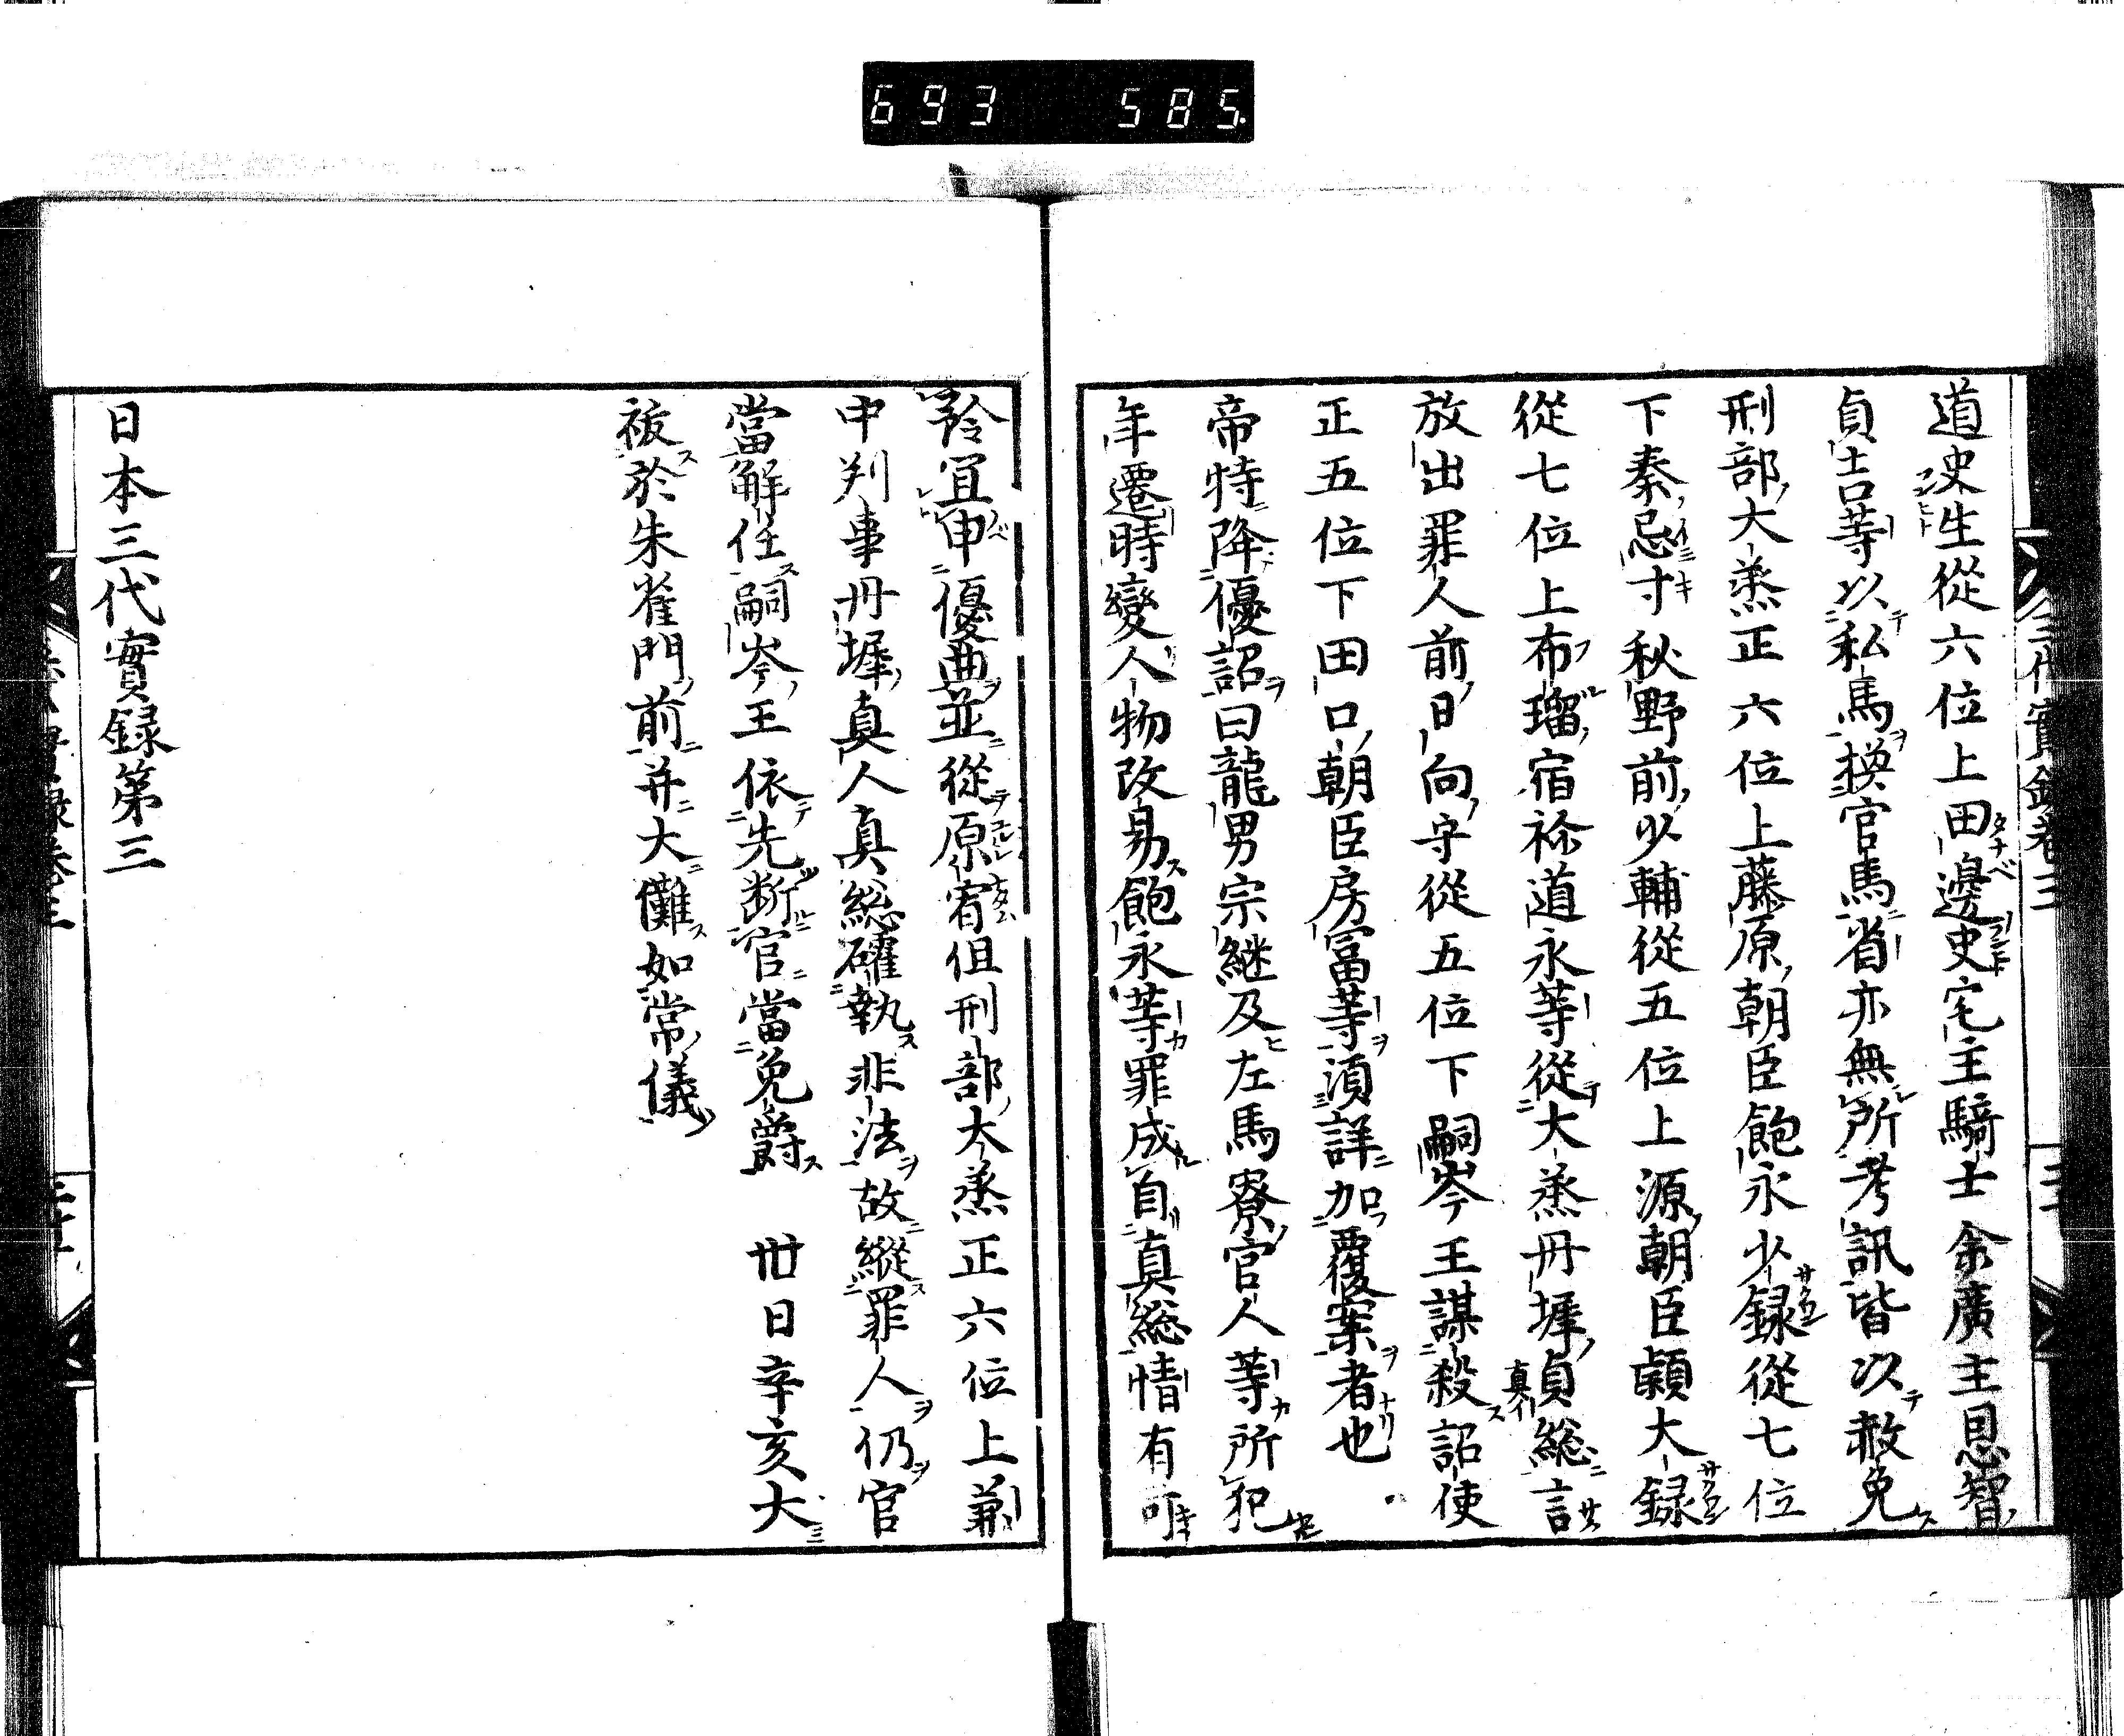 693 585.
道史生從六位上田邊史宅主騎士余廣主恩智
貞吉等以私馬換官馬省亦無所考訊皆以赦免
刑部大丞正六位上藤原朝臣飽永少録從七位
下秦忌寸秋野前少輔從五位上源朝臣頴大録
從七位上布瑠宿祢道永等從大丞丹墀貞総言
真イ
放出罪人前日向守從五位下嗣岑王謀殺詔使
正五位下田口朝臣房冨等湏詳加覆案者也
帝特降優詔曰龍男宗継及左馬寮官人等所犯
年遷時變人物改易飽永等罪成自真総情有可
矜宜申優曲並從原宥但刑部大丞正六位上兼
中判事丹墀真人真総確執非法故縱罪人仍官
當解任嗣岑王依先断官當免爵 丗日辛亥大
祓於朱雀門前并大儺如常儀
日本三代實録第三